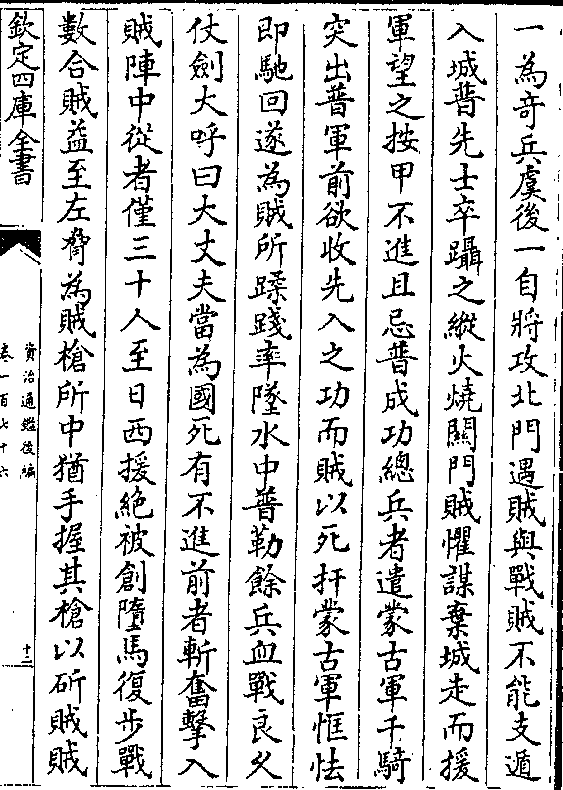 一為奇兵虞後一自將攻北門遇賊與戰賊不能支遁
入城普先士卒躡之縱火燒關門賊懼謀棄城走而援
軍望之按甲不進且忌普成功總兵者遣蒙古軍千騎
突出普軍前欲收先入之功而賊以死扞蒙古軍恇怯
即馳回遂為賊所蹂踐率墜水中普勒餘兵血戰良久
仗劍大呼曰大丈夫當為國死有不進前者斬奮擊入
賊陣中從者僅三十人至日西援絶被創墮馬復步戰
數合賊益至左脅為賊槍所中猶手握其槍以斫賊賊
欽定四庫全書
資治通鑑後編
卷一百七十六
十二